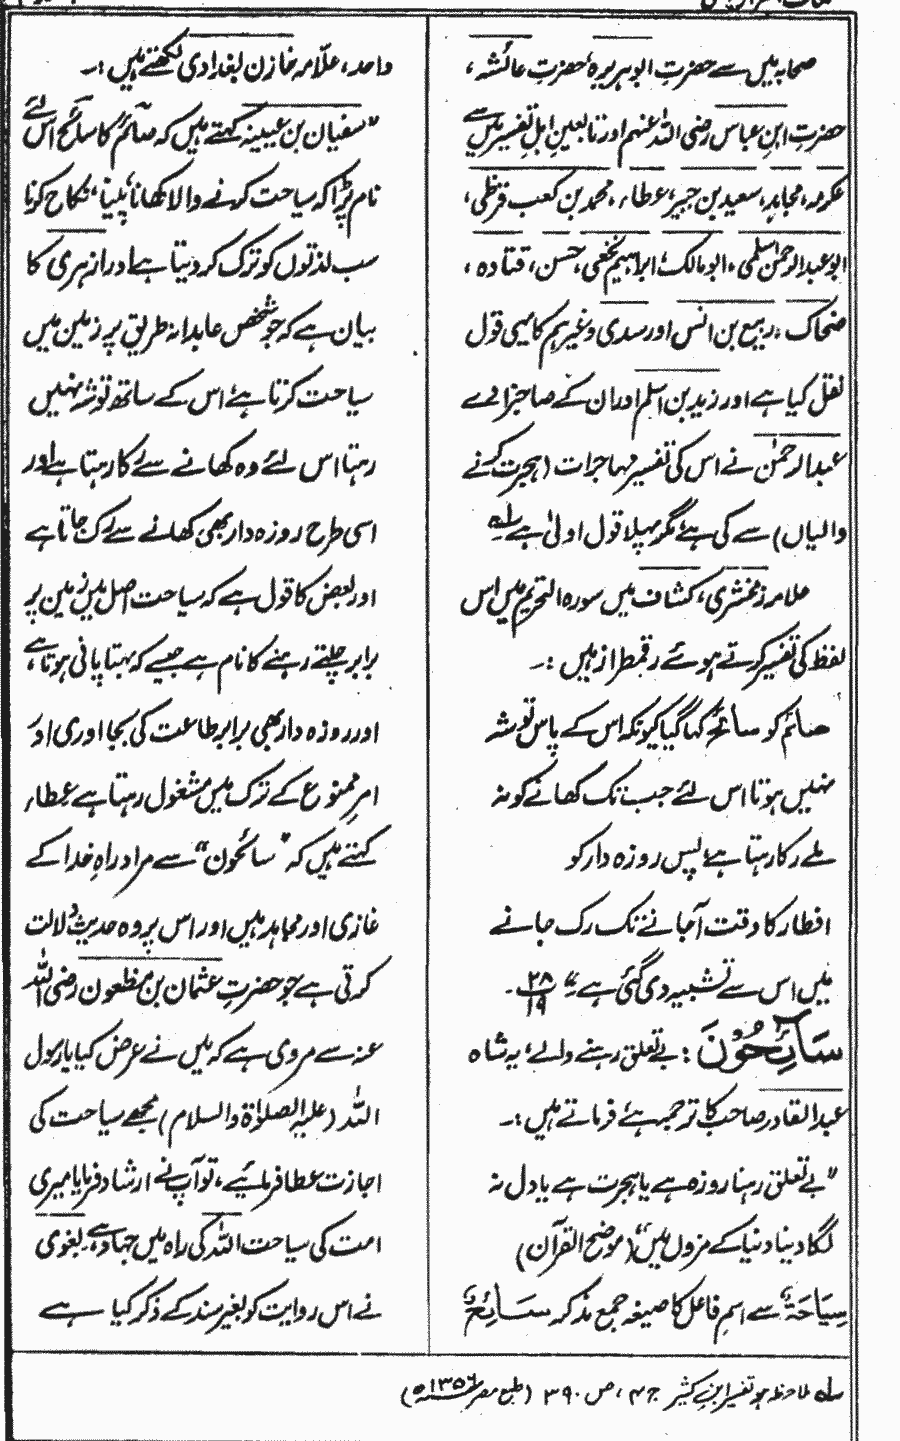 صحابہ میں سے حضرت ابوہریرہؓ، حضرت عائشہ،
حضرتِ ابنِ عباس رضی اللہ عنہم اور تابعینِ اہلِ تفسیر میں سے
عکرمہ، مجاہد، سعید بن جبیر، عطاء، محمد بن کعب قرظی،
ابو عبدالرحمٰن سلمی، ابو مالک، ابراہیم نخعی، حسن، قتادہ،
ضحاک، ربیع بن انس اور سدی وغیرہم کا یہی قول
نقل کیا ہے اور زید بن اسلم اور ان کے صاحبزادے
عبدالرحمٰن نے اس کی تفسیر مہاجرات (ہجرت کرنے
والیاں) سے کی ہے، مگر پہلا قول اولیٰ ہے ؎
علامہ زمخشری، کشاف میں سورہ التحریم میں اس
لفظ کی تفسیر کرتے ہوئے رقمطراز ہیں :۔
صائم کو سائح کہا گیا کیونکہ اس کے پاس توشہ
نہیں ہوتا اس لئے جب تک کھانے کو نہ
ملے رکا رہتا ہے، پس روزہ دار کو
افطار کا وقت آجانے تک رک جانے
میں اس سے تشبیہ دی گئی ہے ۲۸/۱۹ ۔
سَائِحُوْنَ : بے تعلق رہنے والے، یہ شاہ
عبدالقادر صاحب کا ترجمہ ہے فرماتے ہیں :۔
"بے تعلق رہنا روزہ ہے یا ہجرت ہے یا دل نہ
لگا دینا دنیا کے مزوں میں" (موضح القرآن)
سِیَاحَۃٌ سے اسم فاعل کا صیغہ جمع مذکر سَائِحٌ
واحد، علّامہ خازن بغدادی لکھتے ہیں :۔
"سفیان بن عیینہ کہتے ہیں کہ صائم کا سائح اس لئے
نام پڑا کہ سیاحت کرنے والا کھانا، پینا، نکاح کرنا
سب لذتوں کو ترک کر دیتا ہے اور ازہری کا
بیان ہے کہ جو شخص عابدانہ طریق پر زمین میں
سیاحت کرتا ہے اس کے ساتھ توشہ نہیں
رہتا اس لئے وہ کھانے سے رکا رہتا ہے اور
اسی طرح روزہ دار بھی کھانے سے رک جاتا ہے
اور بعض کا قول ہے کہ سیاحت اصل میں زمین پر
برابر چلتے رہنے کا نام ہے جیسے کہ بہتا پانی ہوتا ہے،
اور روزہ دار بھی برابر طاعت کی بجا آوری اور
امرِ ممنوع کے ترک میں مشغول رہتا ہے عطاء
کہتے ہیں کہ "سائحون" سے مراد راہِ خدا کے
غازی اور مجاہد ہیں اور اس پر وہ حدیث دلالت
کرتی ہے جو حضرتِ عثمان بن مظعون رضی اللہ
عنہ سے مروی ہے کہ میں نے عرض کیا یا رسول
اللہ (علیہ الصلوٰۃ والسلام) مجھے سیاحت کی
اجازت عطا فرمائیے، تو آپ نے ارشاد فرمایا میری
امت کی سیاحت اللہ کی راہ میں جہاد ہے، بغوی
نے اس روایت کو بغیر سند کے ذکر کیا ہے
؎ ملاحظہ ہو تفسیر ابن کثیر ج ۴، ص ۳۹۰ (طبع مصر ۱۳۵۶ھ)